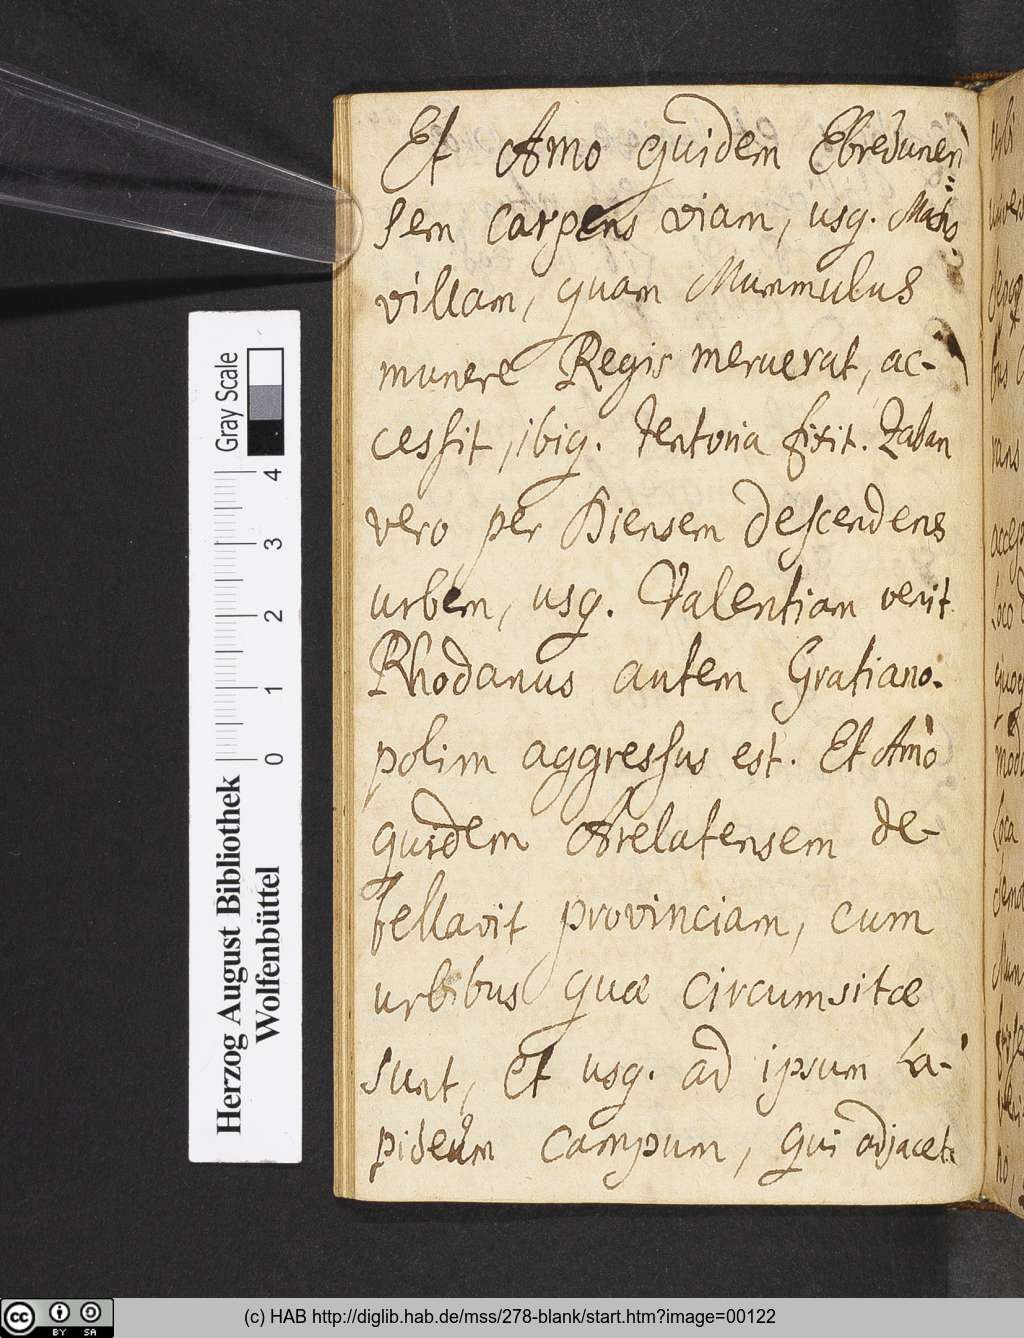 Et Amo quidem Ebredunen
sem carpens viam, usq. Macho
villam, quam Mummulus
munere Regis meruerat, ac-
cessit, ibiq. tentoria fixit. Zaban
vero per Diensem descendens
urbem, usq. Valentiam venit
Rhodanus autem Gratiano-
polim aggressus est. Et Amo
quidem Arelatensem de-
bellavit provinciam, cum
urbibus quae circumsitae
sunt, et usq. ad ipsum La-
pideum campum, qui adjacet
Gray Scale
4
3
2
1
0
Herzog August Bibliothek
Wolfenbüttel
cc BY SA
(c) HAB http://diglib.hab.de/mss/278-blank/start.htm?image=00122